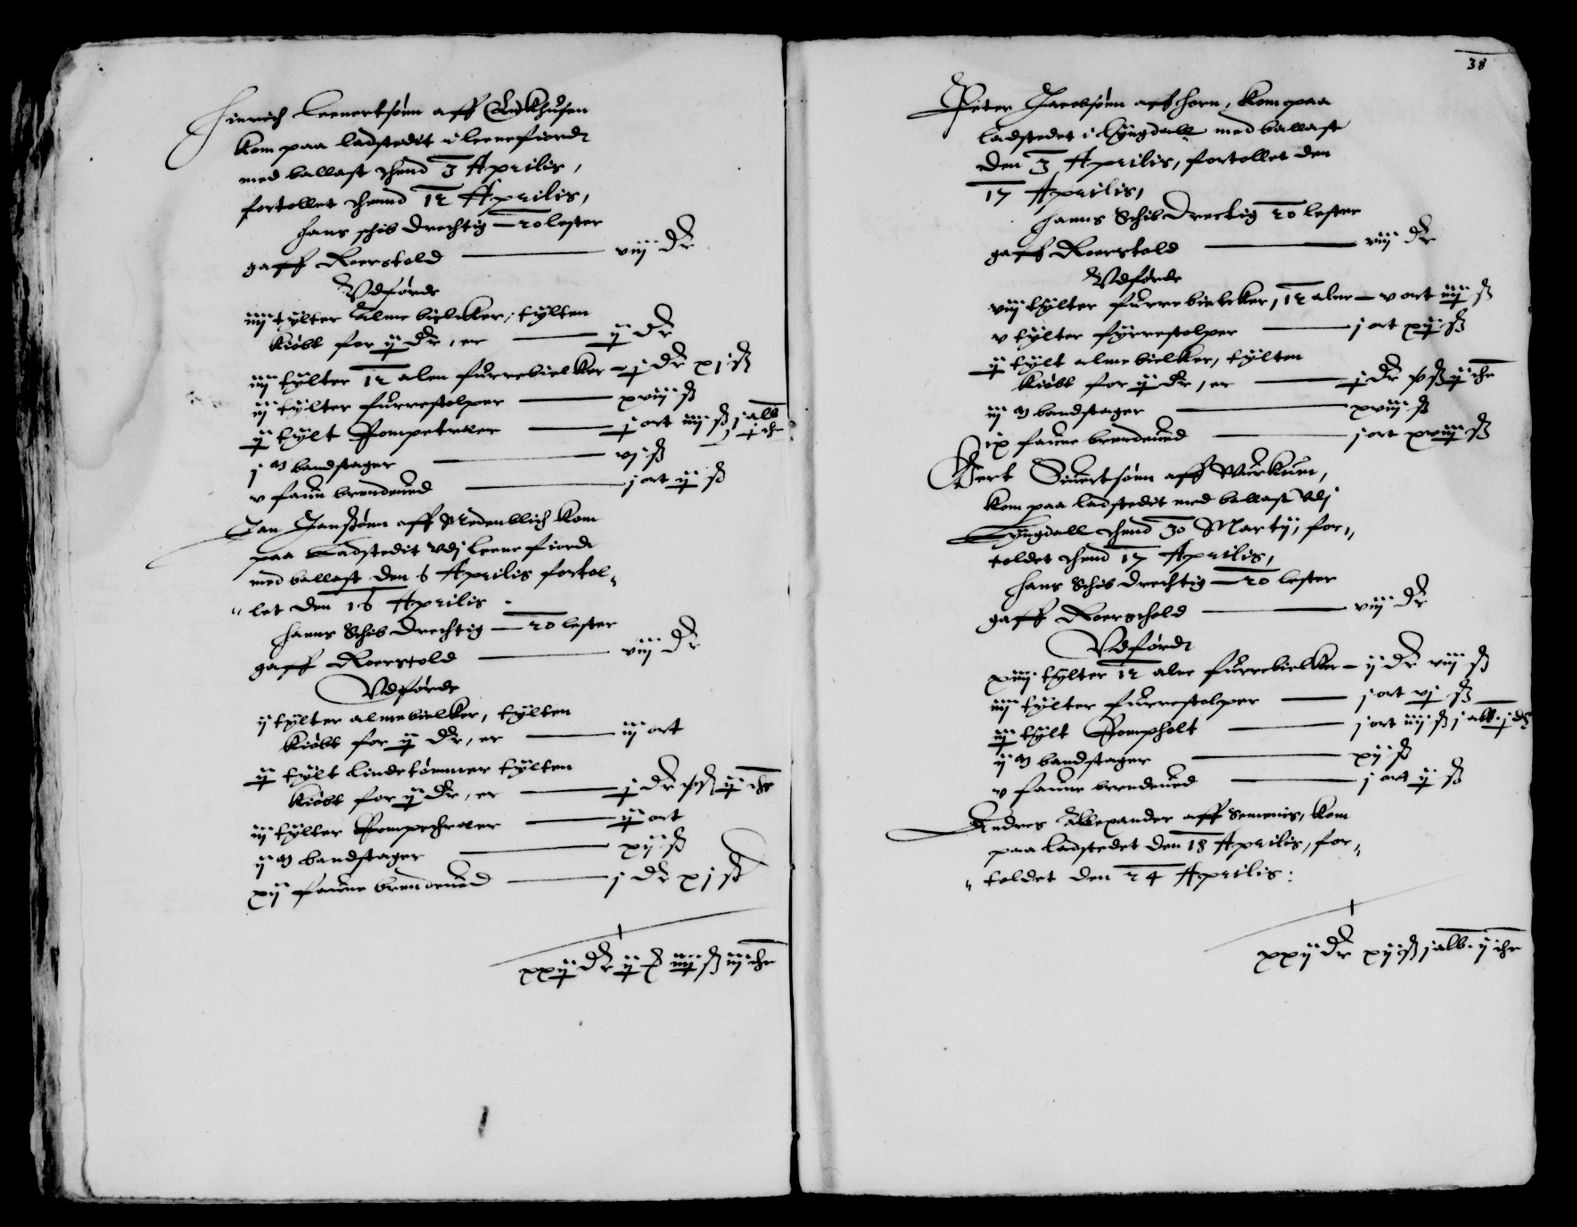 Hinrich Leenertsønn aff Enckhusen
kom paa ladstedit i Leenefiordt
med ballast thend 3 Aprilis,
fortollet thennd 12 Aprilis,
Hans schib drechtig — 20 lester
gaff Roerstold — viij dr
Udførde
iiij tylter alme bielcker, tylten
kiøbt for ij dr, er — ij dr
iiij tylter 12 alen furrebielker — j dr xj ß
iij tylter furrestolper — xviij ß
ij tylt Pompetræer — j ort iiij ß j alb j chr
j m bandstager — vj ß
v faun brendeued — j ort ij ß
Jan Janßønn aff Medenblich kom
paa Ladstedit vdj Leenefiord
med ballast den 6 Aprilis fortol„
„let den 16 Aprilis
Hanns Schib drechtig — 20 lester
gaff Roerstold — viij dr
Vdførde
ij tylter almebielker, tylten
kiøbt for ij dr, er — iij ort
ij tylt lindetømmer tylten
kiøbt for ij dr, er — j dr ß ij chr
iij tylter — ij ort
ij m bandstager — xij ß
xij faune brendeued — j dr xj ß
xxij dr ij ß iiij ß iij chr
38
Peter Jacobsønn aff Horn, kom paa
ladstedet i Lyngdall med ballast
den 3 Aprilis, fortollet den
17 Aprilis,
Hanns Schib drectig 20 lester
gaff Roerstold — viij dr
Vdførde
viij tylter furre bielcker, 12 alne — v ort iiij ß
v tylter fyrrestolper — j ort xij ß
ij tylt alme bielker, tylten
kiøbt for ij dr, er — j dr ß ij chr
iij m bandstager — xviij ß
ix faune brendeued — j ort xviij ß
Gert Siuertsønn aff Wurkum,
kom paa ladstedit med ballast vdj
Lyngdall thend 30 Martij, for„
toldet thend 17 Aprilis,
Hans Schib drechtig — 20 lester
gaff Roerschold — viij dr
Vdførdt
xiiij tylter 12 alne furrebielker — ij dr viij ß
iiij tylter furrestolper — j ort vj ß
iij tylt Pompholt — j ort iiij ß j alb. j
ij m bandstager — xij ß
v faune brendeued — j ort ij ß
Andres Allexander aff Semenis, kom
paa ladstedet den 18 Aprilis, for„
„toldet den 24 Aprilis:
xxij dr xij ß j alb. ij chr